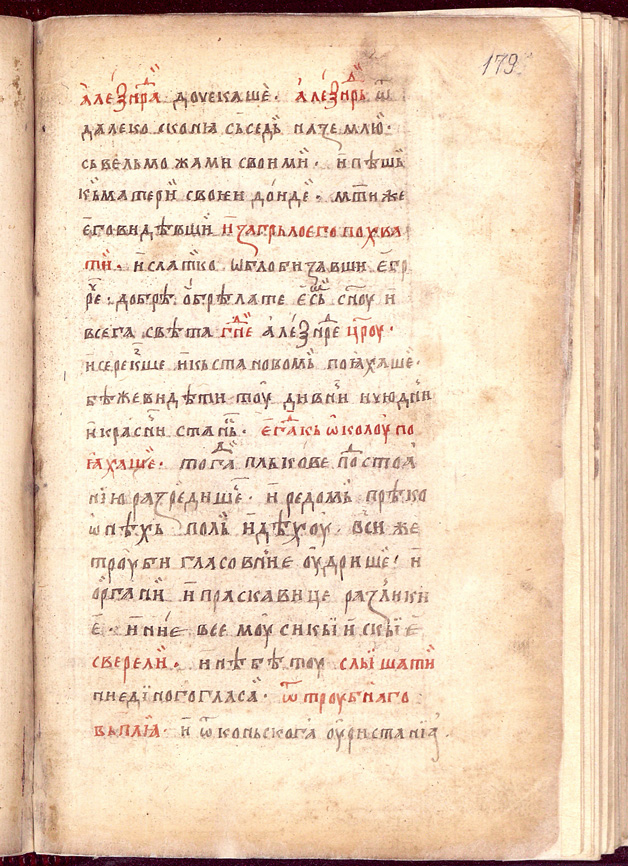 179
але́ѯⷣнра довекаше · але́ѯнⷣрь ѿ
далеко с конꙗ съседь на землю ·
сь вельможами своими · и пѣшь
къ матери своюи до́иде · мт҃и же
ѥго видѣвши и за грьло ѥго похва
ти · и слатко ѡблобизавши ѥго
рѐ · добрѣ ѡбрѣлате ѥсь сн҃оу и
всега свѣта гпⷭ҇не але́ѯнⷣре цр҃оу ·
и кь становомь поꙗхаше ·
бѣ же видѣти тоу дивни и юдни
и красни стань · ѥгⷣа кь ѡколоу по
ꙗхаше · тогⷣа плькове по стоꙗ
нїю разредише · и редомь прѣко
ѡ нѣхь поль идѣхоу · вси же
троуби гласовне оударише · и
ѡргани и праскавице различни
ѥ · и ине все моусикїи искїѥ
сверели · и не бѣ тоу слышати
ни ѥдїнога гласа · ѿ троубнаго
въпꙗ · и ѿ коньскога оуристанїꙗ